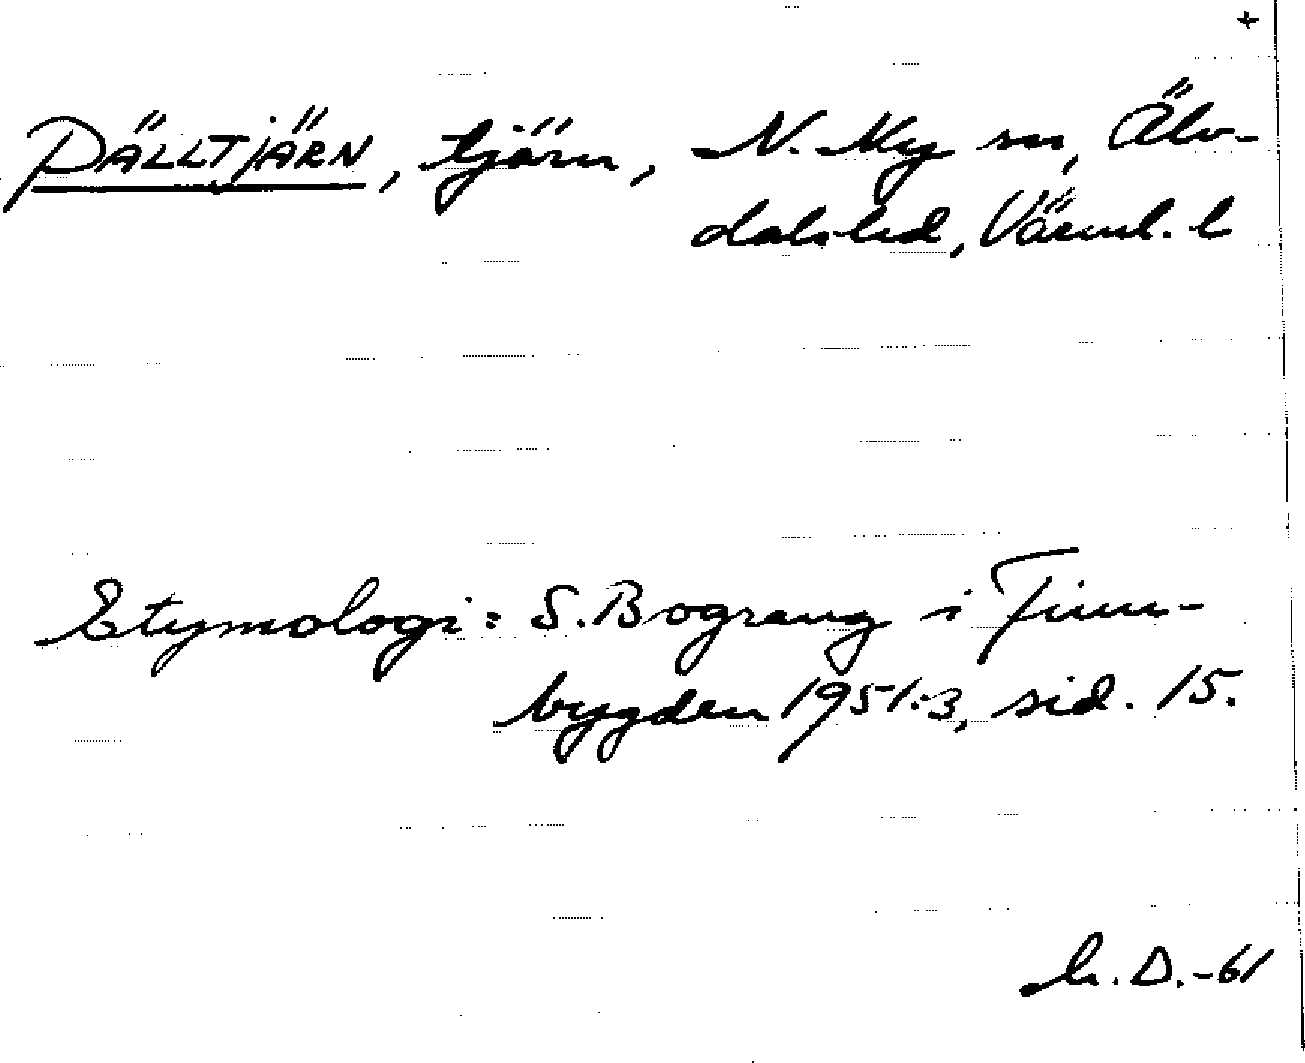 +
PÄLLTJÄRN, tjärn, N. Ny sn, Älv-
dalshd, Värml. l
Etymologi: S. Bograng i Finn-
bygden 1951:3, sid. 15.
D. -61